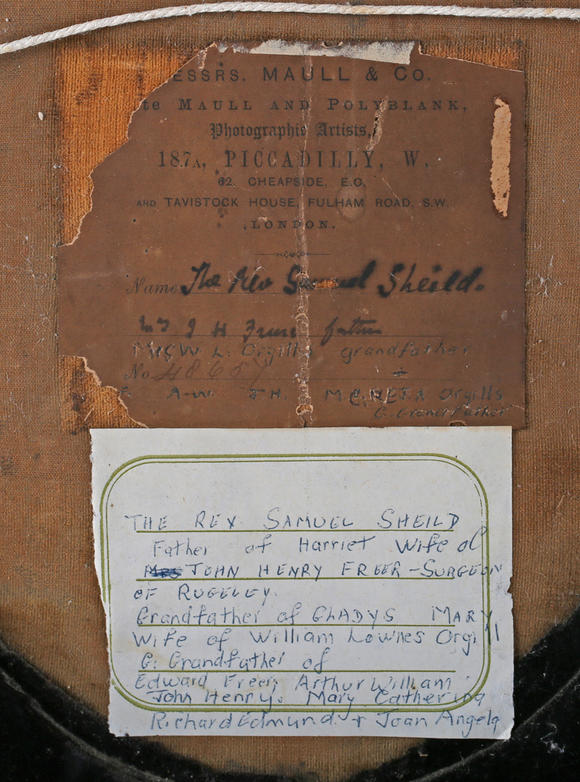 ESSRS. MAULL & CO.
te MAULL AND POLYBLANK,
Photographic Artists,
187A, PICCADILLY, W.
62, CHEAPSIDE, E.C.
AND TAVISTOCK HOUSE, FULHAM ROAD, S.W.
LONDON.
Name The Rev Samuel Sheild.
Mrs J H Freer father
Mrs W L. Orgills grandfather
No
A.W. J.H. M.C. R.E. J.A Orgills
G. Grandfather
THE REX SAMUEL SHEILD
Father of Harriet Wife of
JOHN HENRY FREER - SURGEON
OF RUGELEY.
Grandfather of GLADYS MARY
Wife of William Lownes Orgill
G. Grandfather of
Edward Freer, Arthur William
John Henry. Mary Catherine
Richard Edmund + Joan Angela